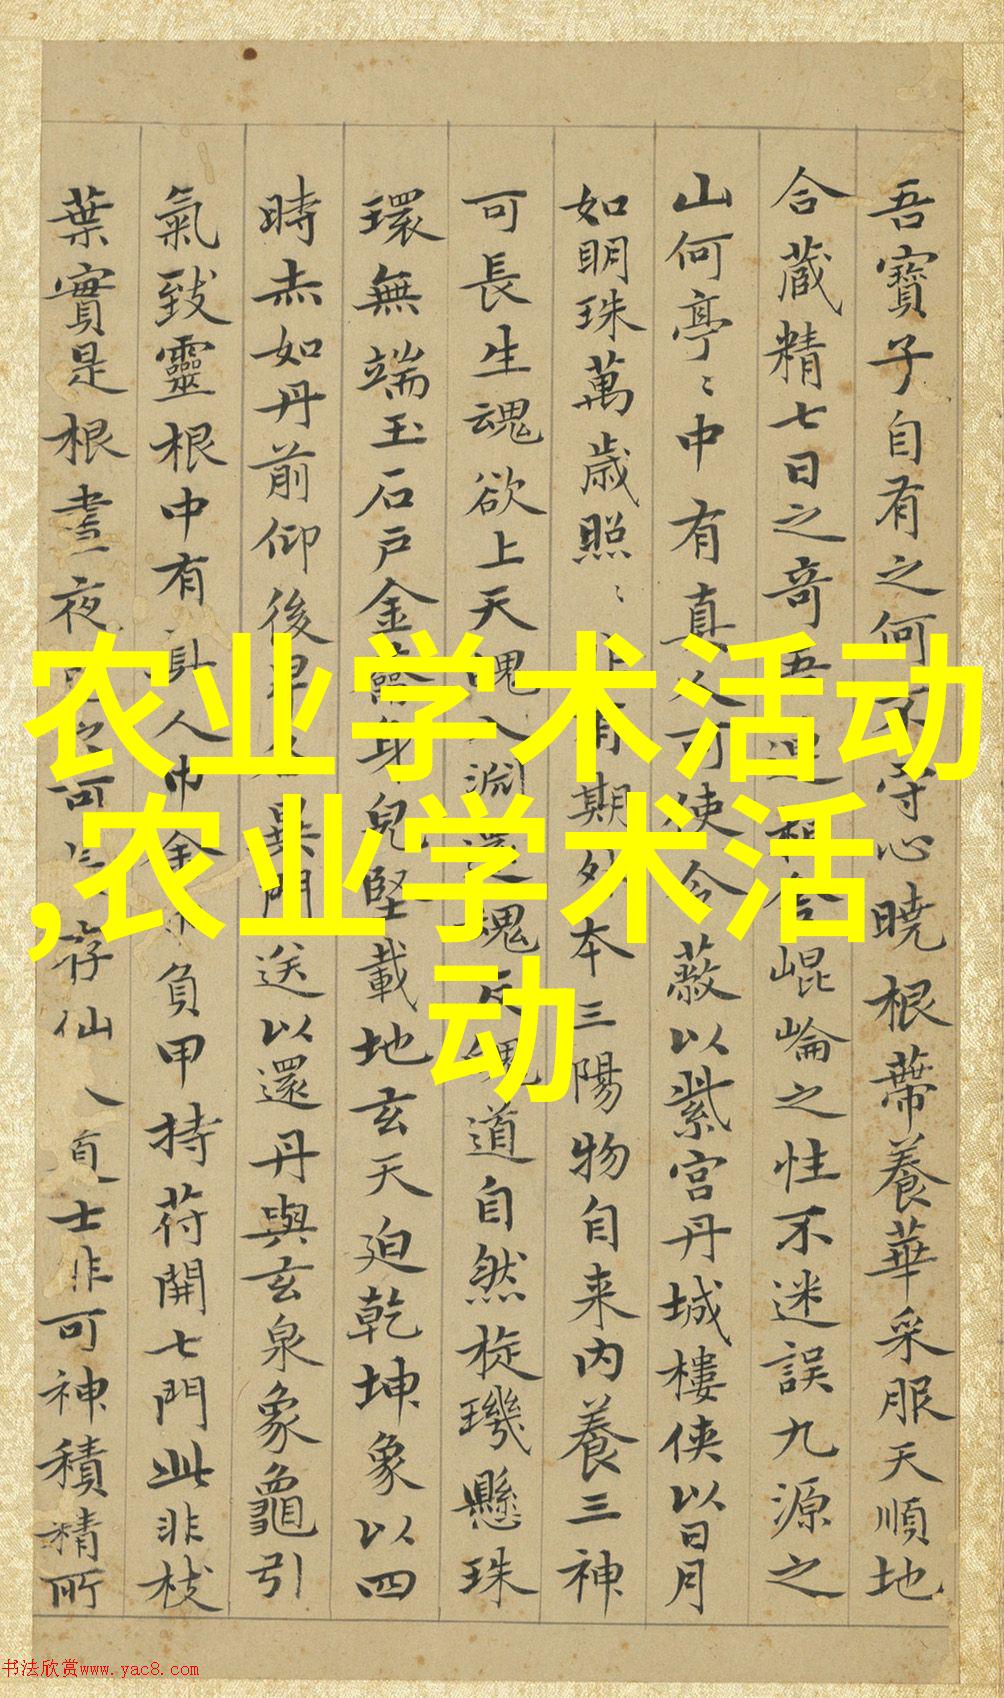 吾寶子自有之何不守心曉根蔕養華采服天順地
合藏精七日之奇吾 相合崐崙之性不迷誤九源之
山何亭〻中有真人可使令蔽以紫宮丹城樓俠以日月
如明珠萬歲照〻非有期外本三陽物自来內養三神
可長生魂欲上天魄入淵還魂反魄道自然旋璣懸珠
環無端玉石戶金籥身兒堅載地玄天迫乾坤象以四
時赤如丹前仰後卑 異門送以還丹與玄泉象龜引
氣致靈根中有真人巾金巾負甲持苻開七門此非枝
葉實是根晝夜 之可 存仙 士非可神積精所
农业学术活动
,农业学术活
动
书法欣赏www.yac8.com